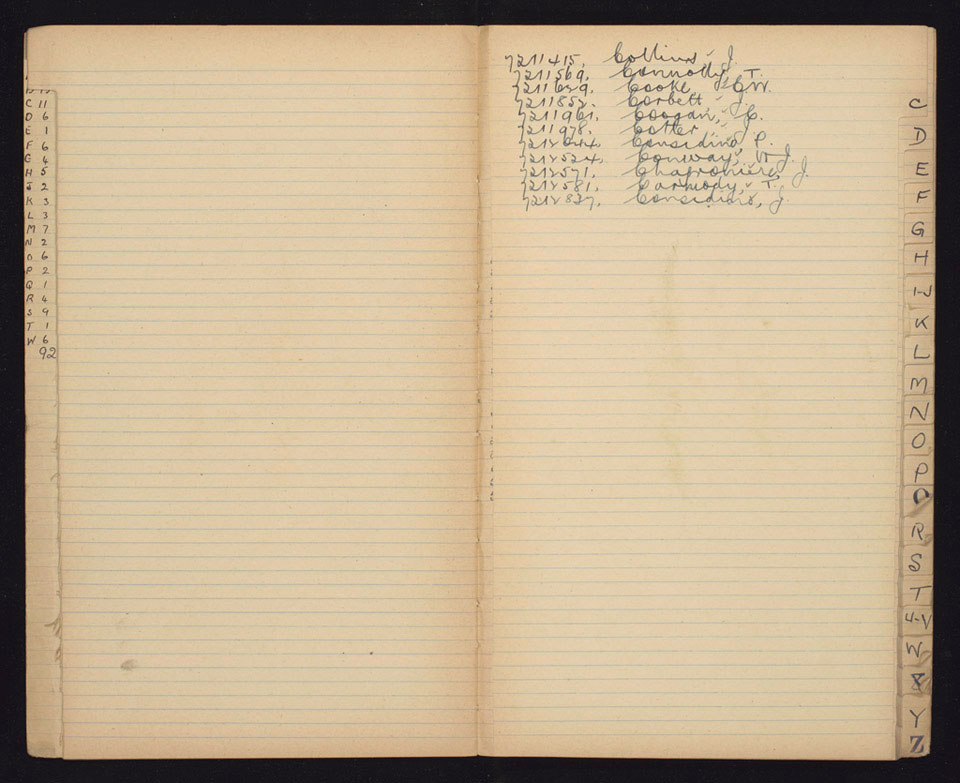 C 11
D 6
E 1
F 6
G 4
H 5
J 2
K 3
L 3
M 7
N 2
O 6
P 2
Q 1
R 4
S 9
T 1
W 6
92
7211415. Collins, J.
7211569. Connolly, T.
7211629. Cooke, C.W.
7211852. Corbett, J.
7211961. Coogan, C.
7211978. Cotter, J.
7212044. Considine, P.
7212524. Conway, W.J.
7212571. Chaproniere, J.
7212581. Carmody, T.
7212827. Considine, J.
C
D
E
F
G
H
K
L
M
N
O
P
R
S
T
U-V
W
X
Y
Z